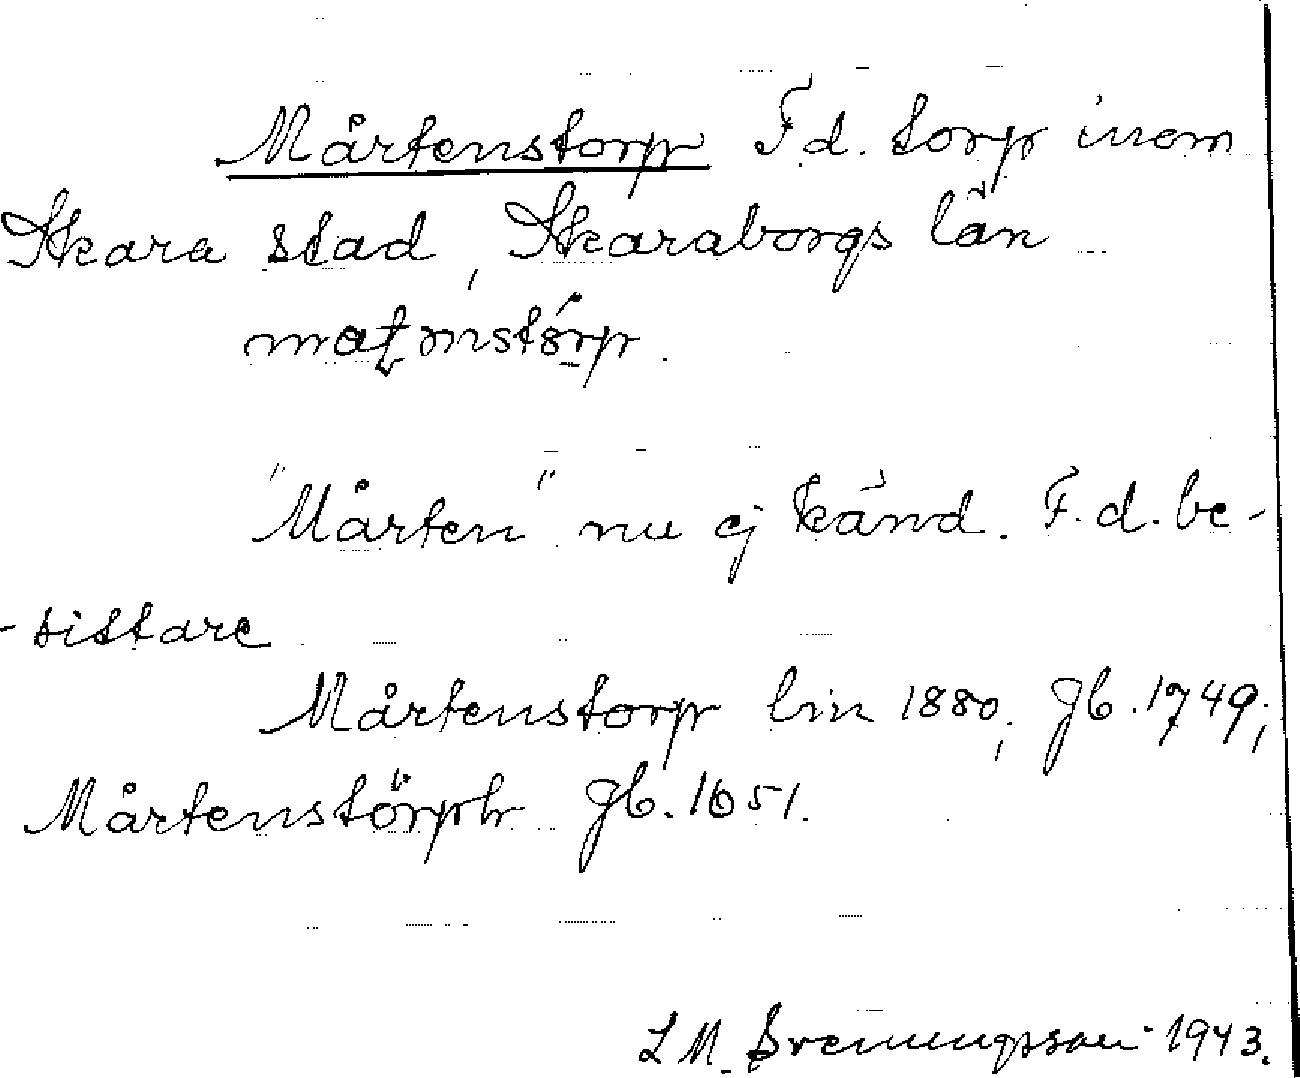 Mårtenstorp F.d. torp inom
Skara stad, Skaraborgs län
"Mårten" nu ej känd. F.d. be-
-sittare
Mårtenstorp lm 1880; Jb. 1749;
Mårtenstörph Jb. 1651.
L M 1943.